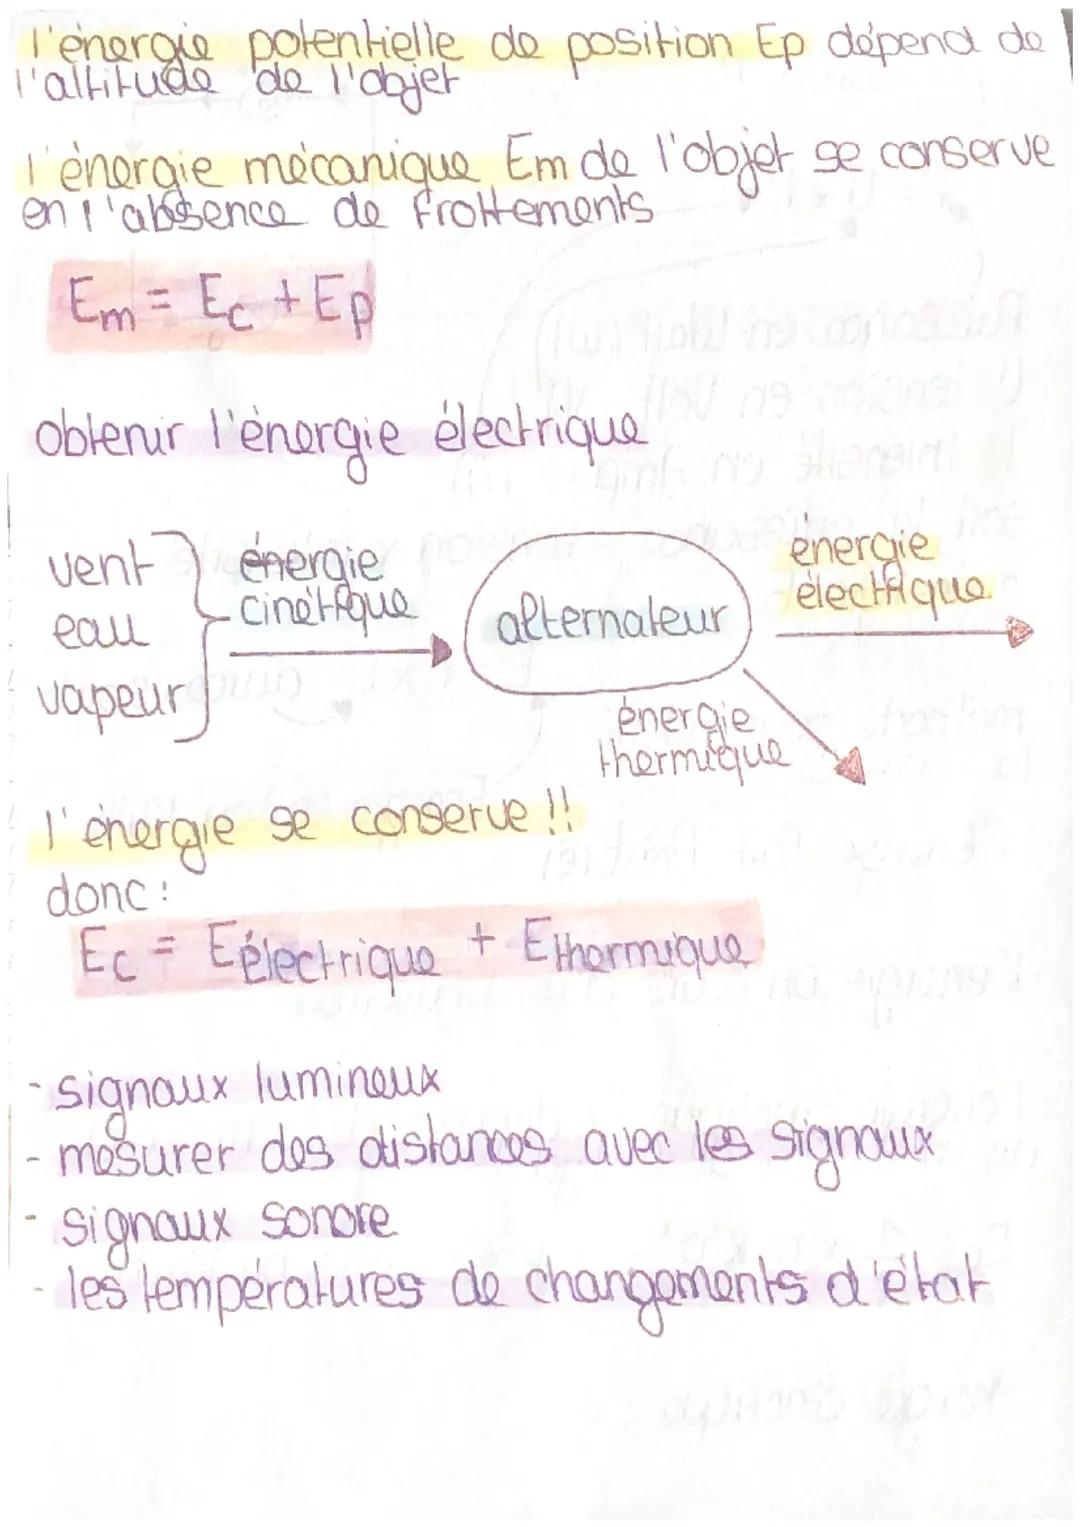 l'énergie potentielle de position Ep dépend de
l'altitude de l'objet
l'énergie mécanique Em de l'objet se conserve
en l'absence de frottements
Em = Ec + Ep
obtenir l'énergie électrique
vent
eau
vapeur
énergie
cinétique
alternateur
énergie
électrique
énergie
thermique
l'énergie se conserve !!
donc :
Ec = Eélectrique + Ethermique
- signaux lumineux
- mesurer des distances avec les signaux
- signaux sonore
- les températures de changements d'état